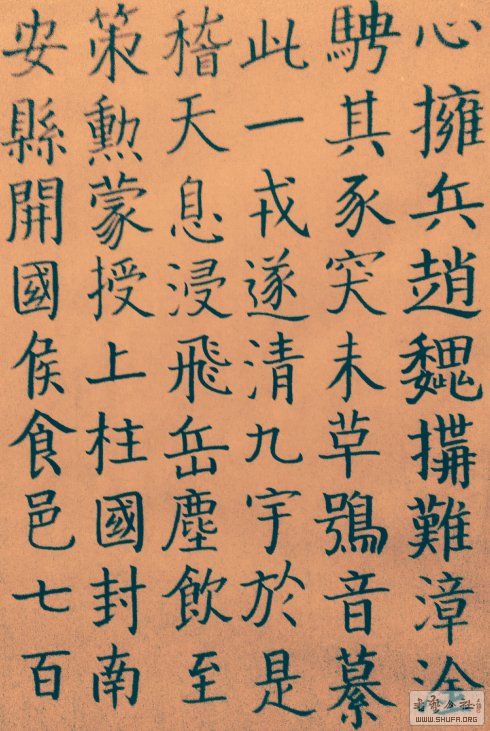 心擁兵趙魏搆難漳滏
騁其豕突未草鴞音纂
此一戎遂清九宇於是
稽天息浸飛岳塵飲至
策勳蒙授上柱國封南
安縣開國侯食邑七百
WWW.SHUFA.ORG